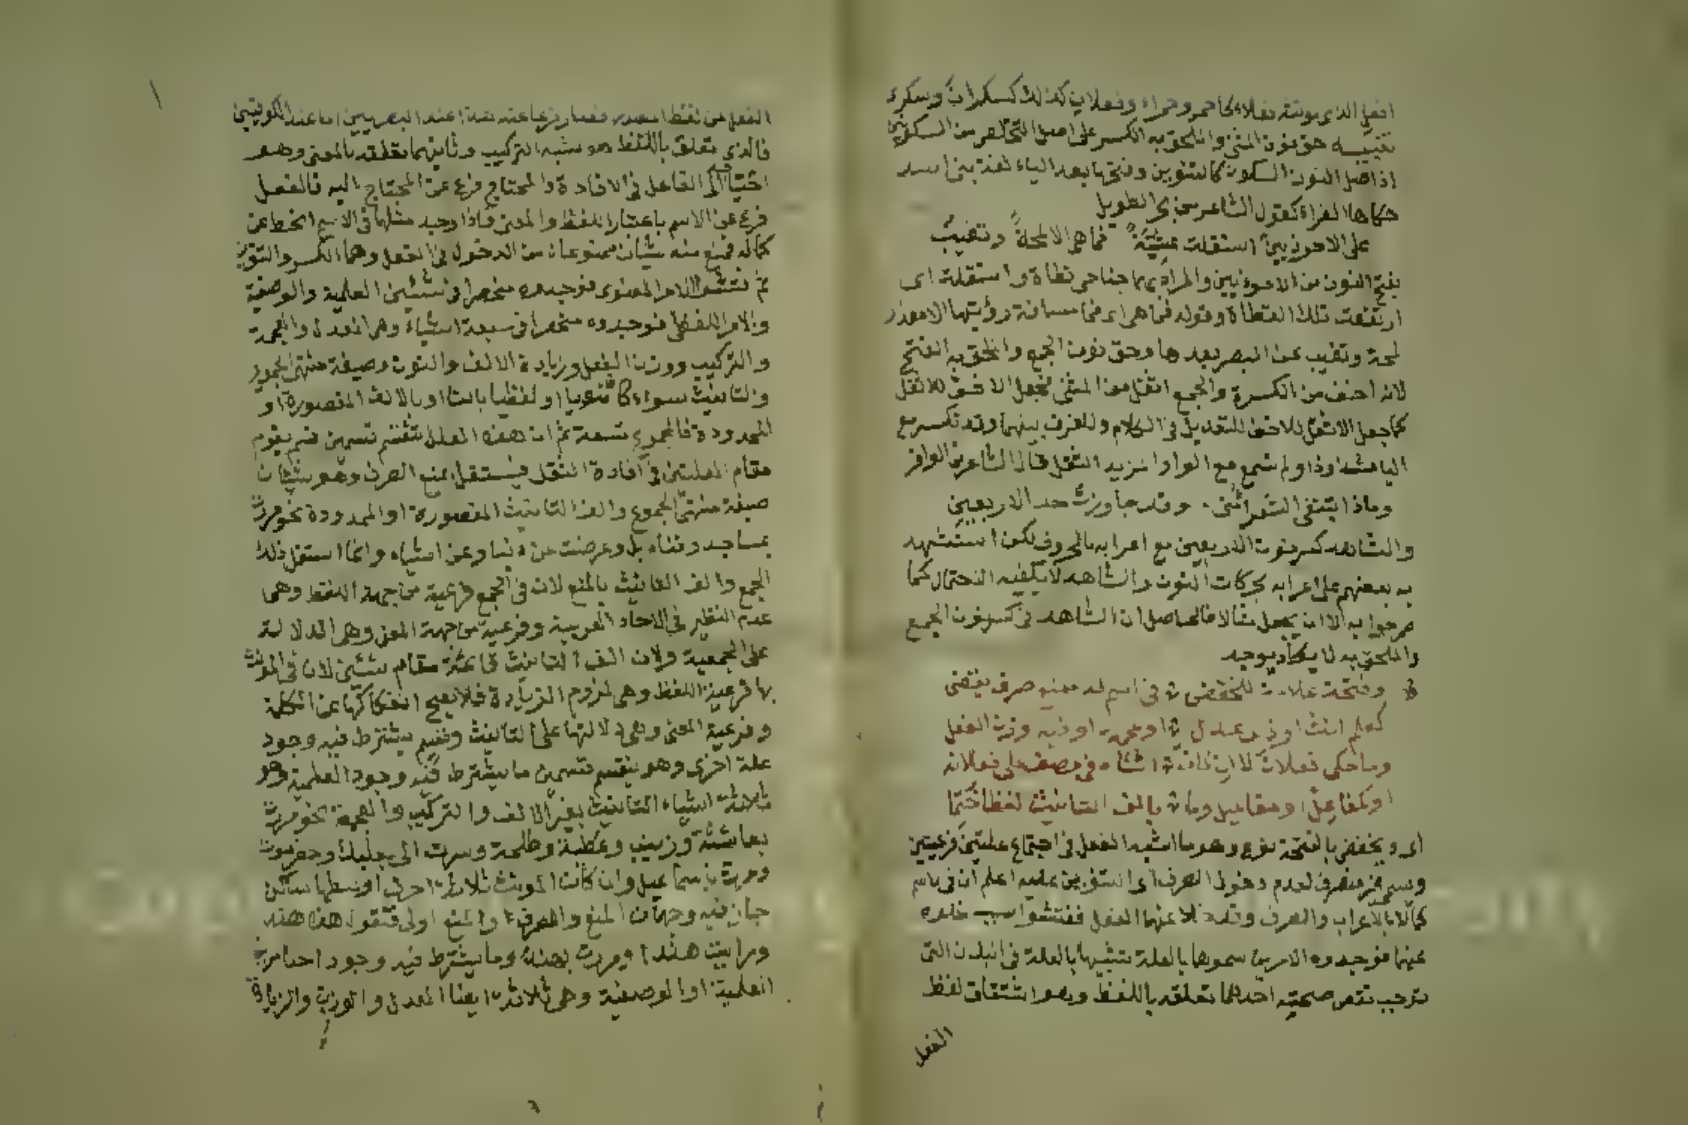 افعل الذي مؤنثه فعلاء كاحمر وحمراء وفعلان كذلك كسكران وسكرى
تنبيه حق نون المثنى والملحق به الكسر على اصل التخلص من السكونين
اذ اصل النون السكون كالتنوين وفتحها بعد الياء لغة بني اسد
حكاها الفراء كقول الشاعر من بحر الطويل
على الاحوذيين استقلت عشية فما هي الا لمحة وتغيب
بفتح النون من الاحوذيين والمراد بهما جناحي قطاة واستقلت اى
ارتفعت تلك القطاة وقوله فما هي اى فما مسافة رؤيتها الا مقدار
لمحة وتغيب عن البصر بعدها وحق نون الجمع والملحق به الفتح
لانه اخف من الكسرة والجمع اثقل من المثنى فجعل الاخف للاثقل
كما جعل الاثقل للاخف للتعديل في الكلام وللفرق بينهما وقد تكسر مع
الياء شذوذا ولم تسمع مع الواو لمزيد الثقل قال الشاعر من الوافر
وماذا تبتغي الشعراء مني وقد جاوزت حد الاربعين
والشاهد كسر نون الاربعين مع اعرابه بالحروف لكن استشهد
به بعضهم على اعرابه بحركات النون والشاهد لا يكفيه الاحتمال كما
صرحوا به الا ان يجعل مثالا فالحاصل ان الشاهد في كسر نون الجمع
والملحق به لا يكاد يوجد
وفتحة علامة للخفض في اسم لمنع صرف يقتضي
كعلم انث او زد عدل او عجمة او فيه وزن الفعل
وما حكى فعلان لا ان انثاه في وصف على فعلانه
او كمفاعل او مفاعيل وما بالف التانيث لفظا ختما
اى ويخفض بالفتحة نوع وهو ما اشبه الفعل في اجتماع علتين فرعيتين
ويسمى غير منصرف لعدم دخول الصرف اى التنوين عليه اعلم ان في الاسم
كمالا بالاعراب والصرف وقد خلا عنهما الفعل ففتشوا سبب خلوه
عنهما فوجدوه الامرين سموهما بالعلة تشبيها بالعلة في البدن التي
توجب نقص صحته احدهما تعلقه باللفظ وهو اشتقاق لفظ
الفعل
الفعل من لفظ المصدر فصار فرعا عنه هذا عند البصريين اما عند الكوفيين
فالذي يتعلق باللفظ هو شبه التركيب وثانيهما تعلقه بالمعنى وهو
احتياج الى الفاعل في الافادة والمحتاج فرع عن المحتاج اليه فالفعل
فرع عن الاسم باعتبار اللفظ والمعنى فاذا وجد مثلها في الاسم انحط عن
كماله فمنع منه شيئان ممنوعان من الدخول في الفعل وهما الكسر والتنوين
ثم فتشوا الامر المعنوى فوجدوه منحصرا في شيئين العلمية والوصفية
والامر اللفظي فوجدوه منحصرا في سبعة اشياء وهي العدل والعجمة
والتركيب ووزن الفعل وزيادة الالف والنون وصيغة منتهى الجموع
والتانيث سواء كان معنويا او لفظيا بالتاء او بالالف المقصورة او
الممدودة فالمجموع تسعة ثم ان هذه العلل تنقسم قسمين قسم يقوم
مقام العلتين في افادة الثقل فيستقل بمنع الصرف وهو شيئان
صيغة منتهى الجموع والف التانيث المقصورة او الممدودة نحو مررت
بمساجد وعرضت عن دنيا وعن اشياء وانما استقل ذلك
الجمع والف التانيث بالمنع لان في الجمع فرعية من جهة اللفظ وهي
عدم النظير في الاحاد العربية وفرعية من جهة المعنى وهي الدلالة
على الجمعية ولان الف التانيث قائمة مقام شيئين لان في المؤنث
بها فرعية اللفظ وهي لزوم الزيادة فلا يصح انفكاكها عن الكلمة
وفرعية المعنى وهي دلالتها على التانيث وقسم يشترط فيه وجود
علة اخرى وهو ينقسم قسمين ما يشترط فيه وجود العلمية وهو
ثلاثة اشياء التانيث بغير الالف والتركيب والعجمة نحو مررت
بعائشة وزينب وطلحة وسرت الى بعلبك وحضرموت
ومررت باسماعيل وان كان المؤنث ثلاثة احرف اوسطها ساكن
جاز فيه وجهان المنع والصرف والمنع اولى فتقول هذه هند
ورايت هندا ومررت بهند وما يشترط فيه وجود احد امرين
العلمية او الوصفية وهي ثلاثة ايضا العدل والوزن والزيادة